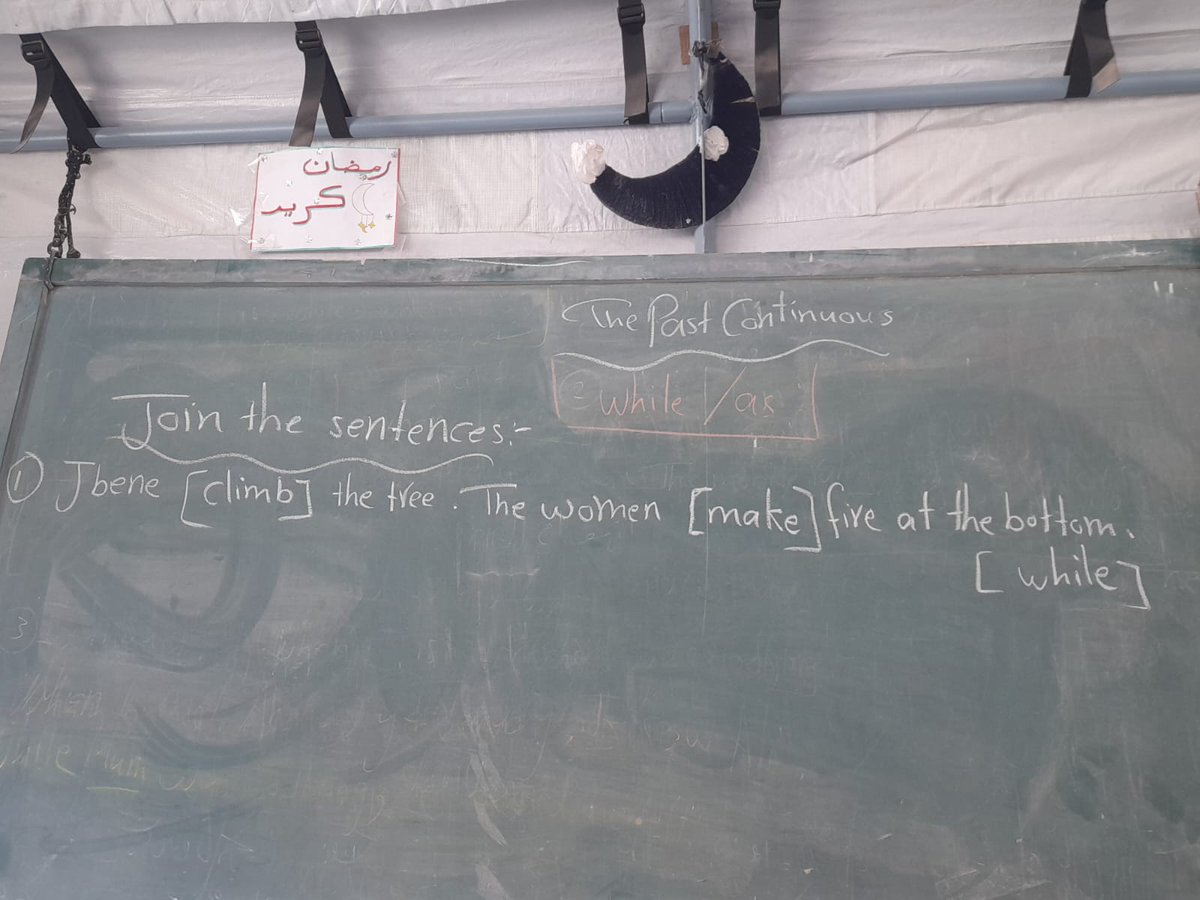 رمضان
كريم
The Past Continuous
2 while / as
Join the sentences:-
① Jbene [climb] the tree. The women [make] fire at the bottom.
[while]
3
When
while Mum